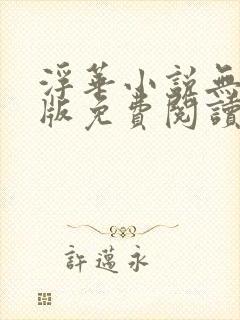 浮華小說無
版免費閱讀
許邁永